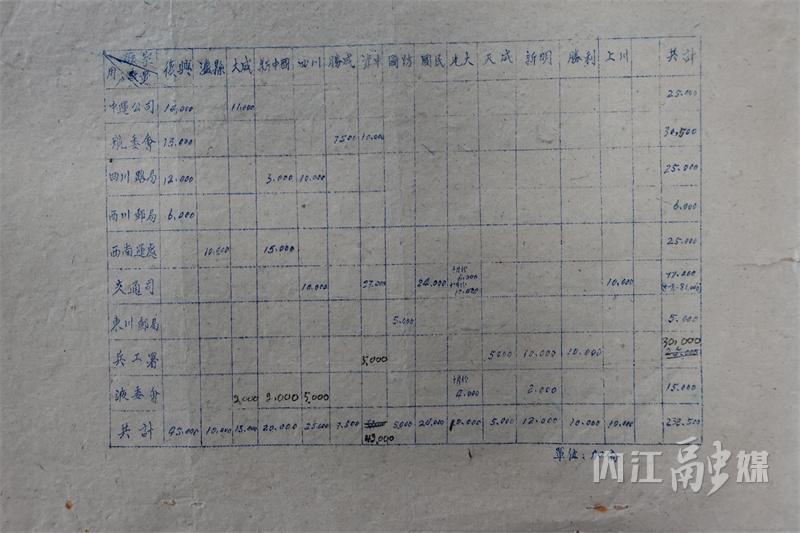 廠家 復興 瀘縣 大成 新中國 四川 勝威 滬東 國防 國民 光大 天成 新明 勝利 上川 共計
用户 數量
中運公司 11,000 25.000
航委會 7500 10.000 30,500
四川路局 12.000 3.000 10.000 25.000
西川郵局 6,000 6.000
西南運處 10.000 15.000 25.000
交通司 10.000 27.000 24.000 10.000
東川郵局 5.000 5.000
兵工署 5,000 5000 10.000 10.000 30,000
液委會 2,000 5,000 2.000 15.000
共計 45.000 10.000 13.000 20.000 25.000 7.500 5.000 24.000 10.000 5.000 12.000 10.000 10.000 232.500
單位：加侖
内江融媒